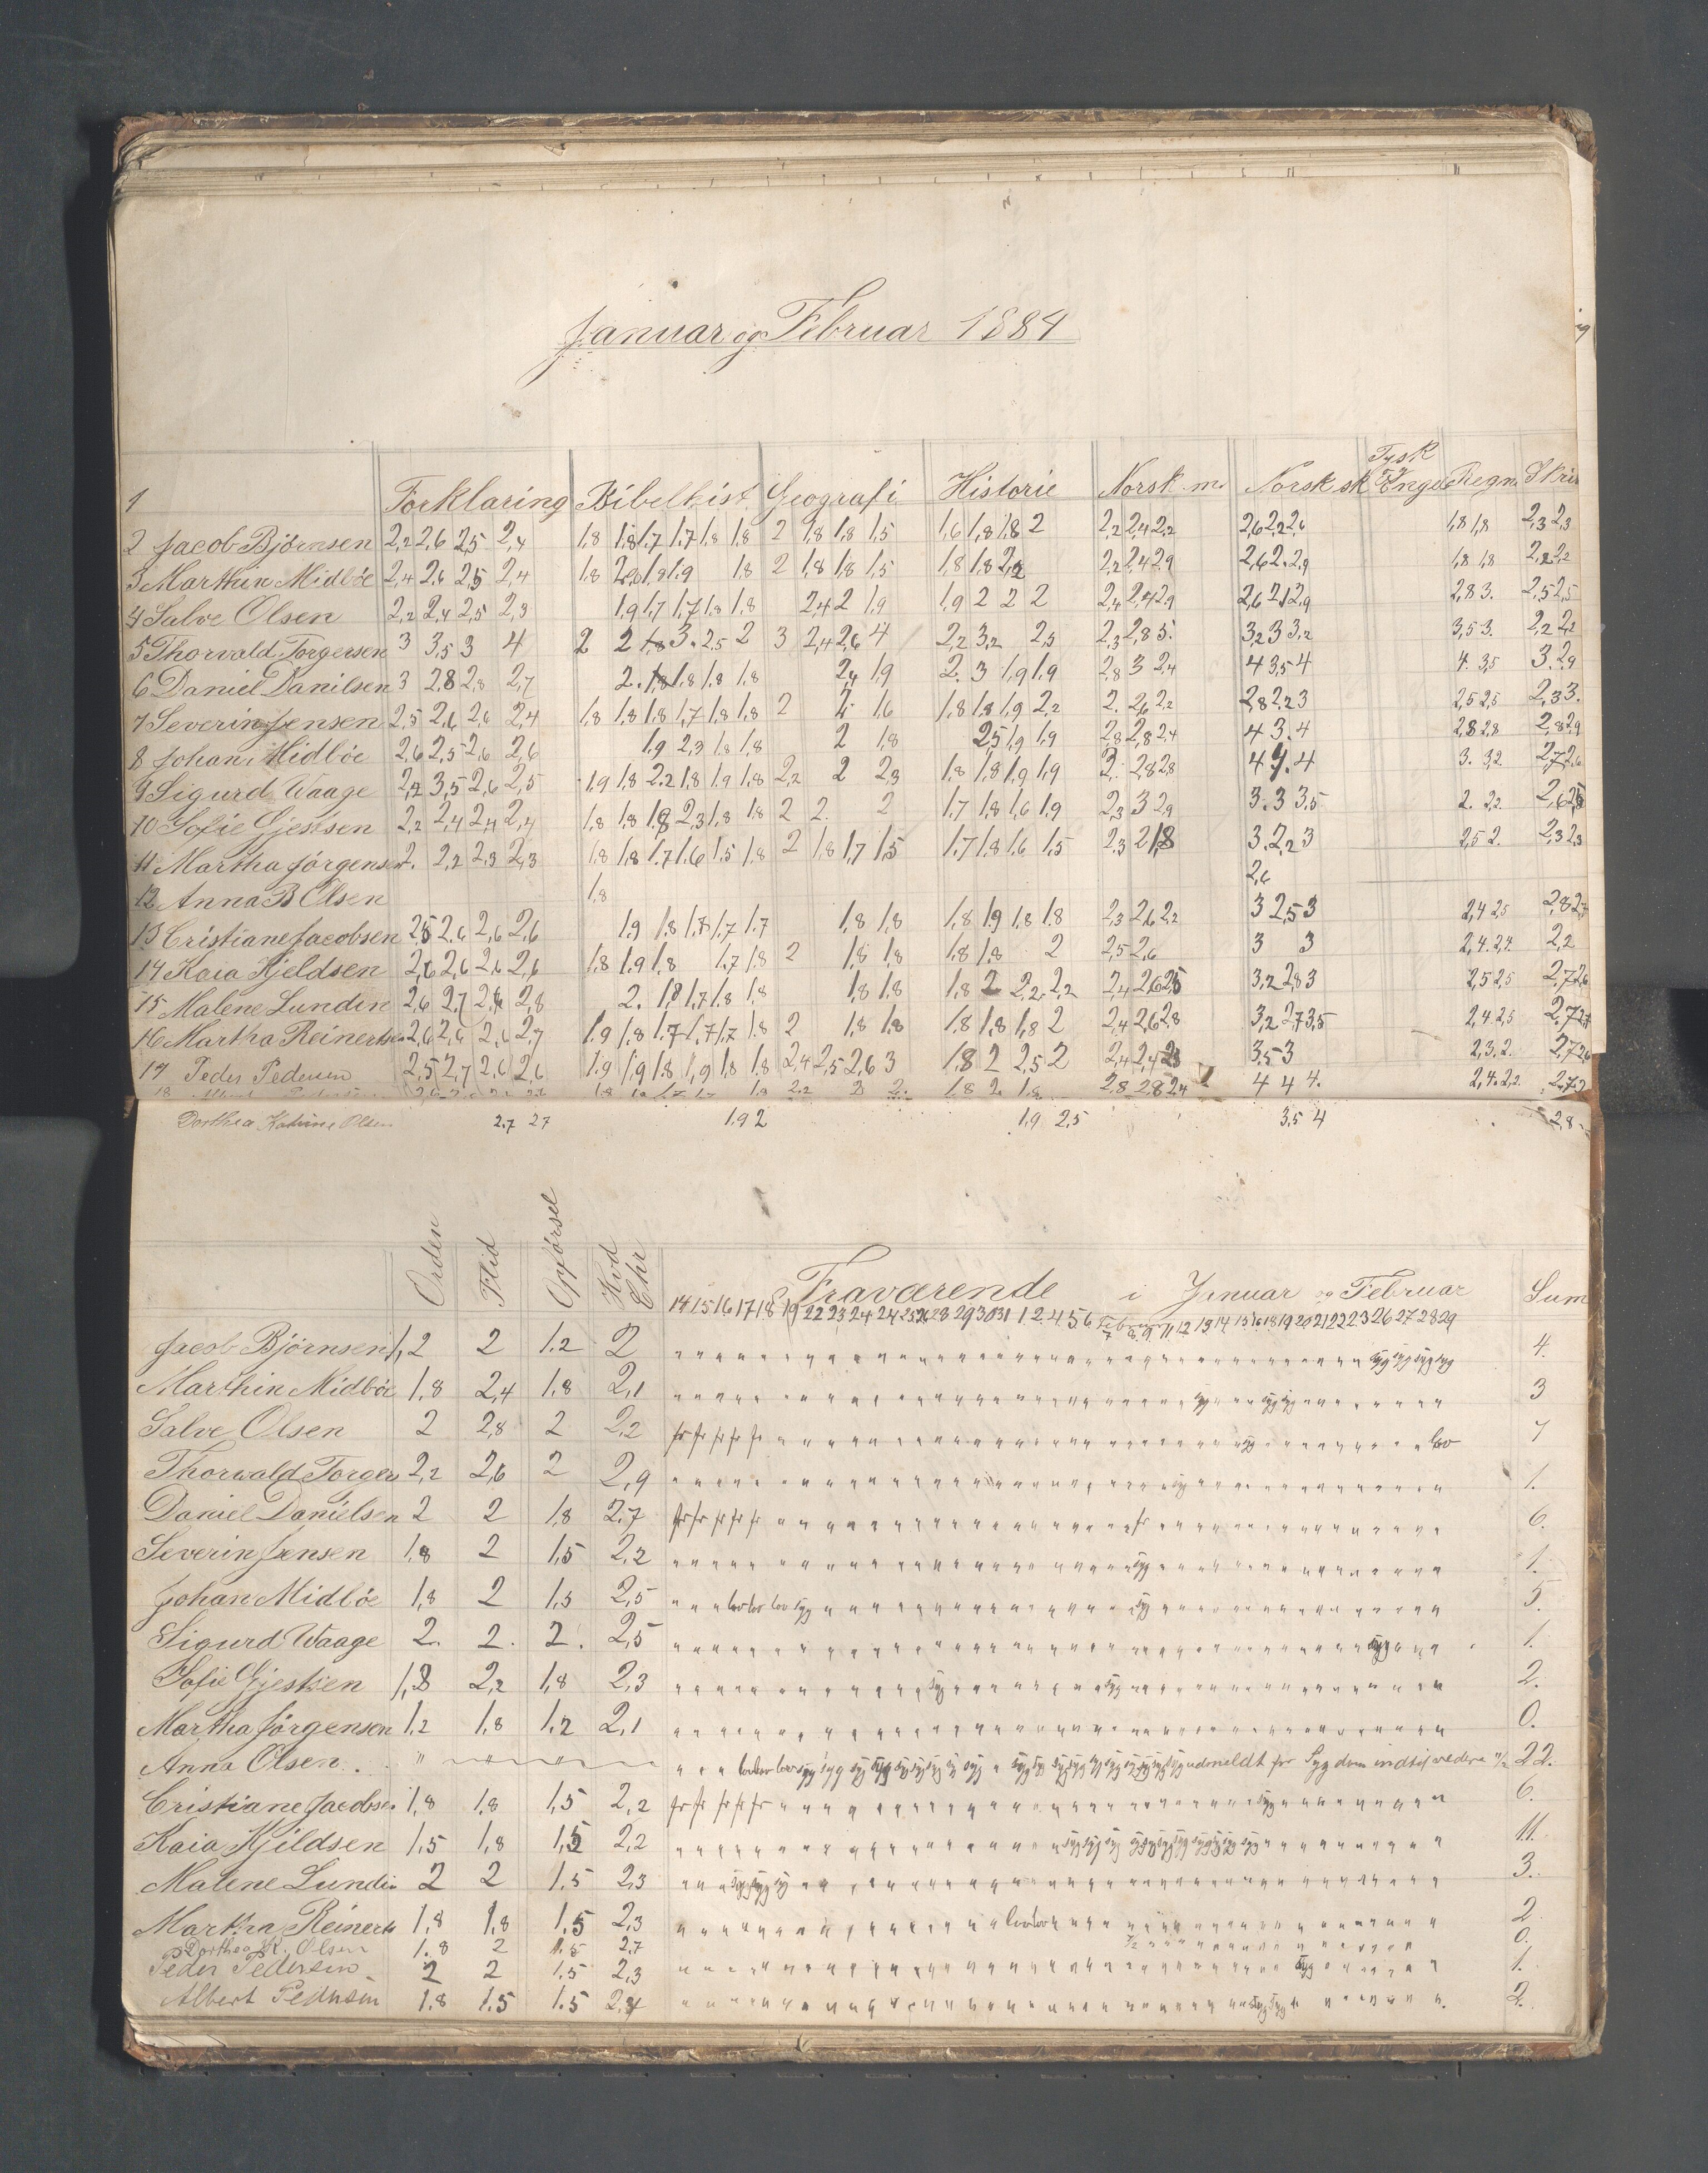 Januar og Februar 1884
1 Forklaring Bibelhist. Geografi Historie Norsk m. Norsk sk Tysk og Enge Regn. Skriv
2 Jacob Bjørnsen 2,2 2,6 2,5 2,4 1,8 1,8 1,7 1,7 1,8 1,8 2 1,8 1,8 1,5 1,6 1,8 1,8 2 2,2 2,4 2,2 2,6 2,2 2,6 1,8 1,8 2,3 2,3
3 Marthin Midbøe 2,4 2,6 2,5 2,4 1,8 2,0 1,8 1,9 1,8 2 1,8 1,8 1,5 1,8 1,8 2,2 2,2 2,4 2,9 2,6 2. 2,9 1,8 1,8 2,2 2,2
4 Salve Olsen 2,2 2,4 2,5 2,3 1,9 1,7 1,7 1,8 1,8 2,4 2 1,9 1,9 2 2 2 2,4 2,4 2,9 2,6 2,1 2,9 2,8 3. 2,5 2,5
5 Thorvald Torgersen 3 3,5 3 4 2 2 1,8 3. 2,5 2 3 2,4 2,6 4 2,2 3,2 2,5 2,3 2,8 3. 3,2 3 3,2 3,5 3. 2,2 2,2
6 Daniel Danilsen 3 2,8 2,8 2,7 2. 1,8 1,8 1,8 1,8 2,4 1,9 2. 3 1,9 1,9 2,8 3 2,4 4 3,5 4 4. 3,5 3. 2,9
7 Severin Jensen 2,5 2,6 2,6 2,4 1,8 1,8 1,8 1,7 1,8 1,8 2 2 1,6 1,8 1,8 1,9 2,2 2. 2,6 2,2 2,8 2,2 3 2,5 2,5 2,3 3.
8 Johan Midbøe 2,6 2,5 2,6 2,6 1,9 2,3 1,8 1,8 2 1,8 2,5 1,9 1,9 2,8 2,8 2,4 4 3. 4 2,8 2,8 2,8 2,9
9 Sigurd Waage 2,2 3,5 2,6 2,5 1,9 1,8 2,2 1,8 1,9 1,8 2,2 2 2,3 1,8 1,8 1,9 1,9 2. 2,8 2,8 4 4. 4 3. 3,2 2,7 2,6
10 Sofie Gjestsen 2,2 2,4 2,4 2,4 1,8 1,8 1,8 2,3 1,8 1,8 2 2. 2 1,7 1,8 1,6 1,9 2,3 3 2,9 3. 3 3,5 2. 2,2 2,6 2,5
11 Martha Jørgensen 2. 2,2 2,3 2,3 1,8 1,8 1,7 1,6 1,5 1,8 2 1,8 1,7 1,5 1,7 1,8 1,6 1,5 2,3 2 1,8 3. 2,2 3 2,5 2. 2,3 2,3
12 Anna B Olsen 1,8 2,6
13 Cristiane Jacobsen 2,5 2,6 2,6 2,6 1,9 1,8 1,8 1,7 1,7 1,8 1,8 1,8 1,9 1,8 1,8 2,3 2,6 2,2 3 2,5 3 2,4 2,5 2,8 2,7
14 Kaia Kjeldsen 2,6 2,6 2,6 2,6 1,8 1,9 1,8 1,7 1,8 2 1,8 1,8 1,8 1,8 2 2,5 2,6 3 3 2,4. 2,4. 2,2
15 Malene Lundin 2,6 2,7 2,6 2,8 2. 1,8 1,7 1,8 1,8 1,8 1,8 1,8 2 2,2. 2,2 2,4 2,6 2,5 3,2 2,8 3 2,5 2,5 2,7 2,6
16 Martha Reinertsen 2,6 2,6 2,6 2,7 1,9 1,8 1,7 1,7 1,7 1,8 2 1,8 1,8 1,8 1,8 1,8 2 2,4 2,6 2,8 3,2 2,7 3,5 2,4 2,5 2,7 2,7
17 Peder Pedersen 2,5 2,7 2,6 2,6 1,9 1,9 1,8 1,9 1,8 1,8 2,4 2,5 2,6 3 1,8 2 2,5 2 2,4 2,4 2,3 3,5 3 2,3. 2. 2,7 2,6
18 1,8 2,2 2. 1,8 2. 1,8 2,8 2,8 2,4 4 4 4. 2,4. 2,2. 2,7.
Dorthea Katrine Olsen 2,7 2,7 1,9 2 1,9 2,5 3,5 4 2,8
Orden Flid Opførsel Hvd Chr Fraværende i Januar og Februar Sum
14 15 16 17 18 19 22 23 24 24 25 26 28 29 30 31 1 2 4 5 6 Februar 7 8. 9. 11 12 13 14 15 16 18 19 20 21 22 23 26 27 28 29
Jacob Bjørnsen 1,2 2 1.2 2 syg syg syg syg 4.
Marthin Midbøe 1,8 2,4 1,8 2,1 syg syg syg 3
Salve Olsen 2 2,8 2 2,2 fr fr fr fr fr syg lov 7
Thorvald Torgers 2,2 2,6 2 2,9 syg 1.
Daniel Danielsen 2 2 1,8 2.7 fr fr fr fr fr fr 6.
Severin Jensen 1,8 2 1,5 2,2 syg 1.
Johan Midbøe 1,8 2 1,5 2,5 lov lov lov syg syg 5.
Sigurd Waage 2. 2. 2. 2,5 syg 1.
Sofie Gjestsen 1,8 2,2 1,8 2,3 syg syg 2.
Martha Jørgensen 1,2 1,8 1.2 2,1 0.
Anna Olsen. lov lov lov syg syg syg syg syg syg syg syg syg syg syg syg syg syg syg syg syg syg syg udmeldt for Sygdom 22.
Cristiane Jacobsen 1,8 1,8 1,5 2,2 fr fr fr fr fr syg 6.
Kaia Kjildsen 1,5 1,8 1,5 2,2 syg syg syg syg syg syg syg syg syg syg syg 11.
Malene Lundin 2 2 1.5 2,3 syg syg syg 3.
Martha Reinerts 1,8 1,8 1.5 2,3 lov lov 2
Dorthea K. Olsen 1.8 2 1.5 2,7 0.
Peder Pedersen 2 2 1.5 2,3 syg 1.
Albert Pedersen 1.8 1.5 1.5 2,4 syg syg 2.